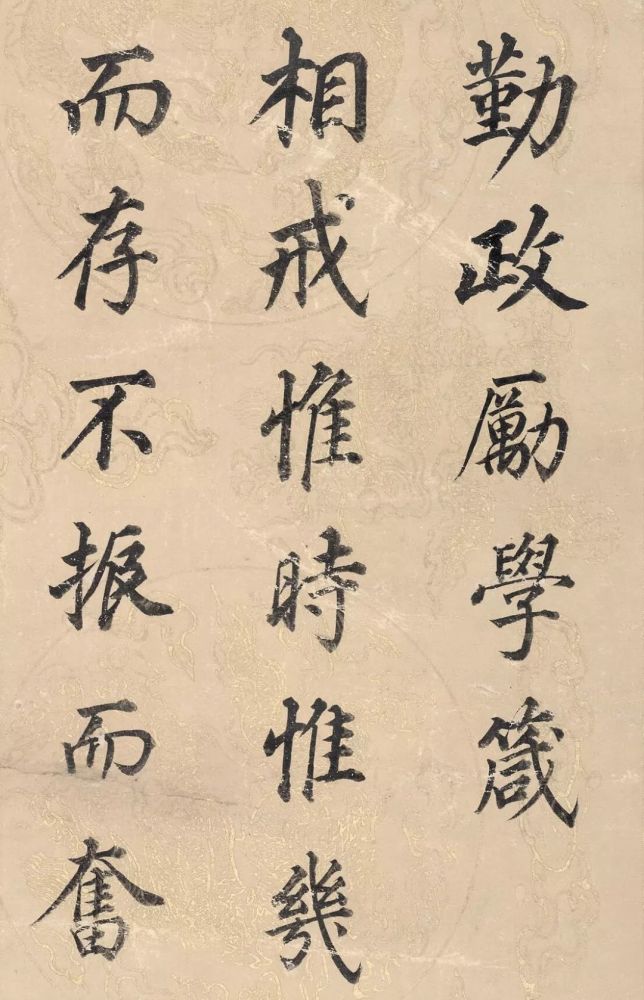 勤政勵學箴
相戒惟時惟幾
而存不振而奮